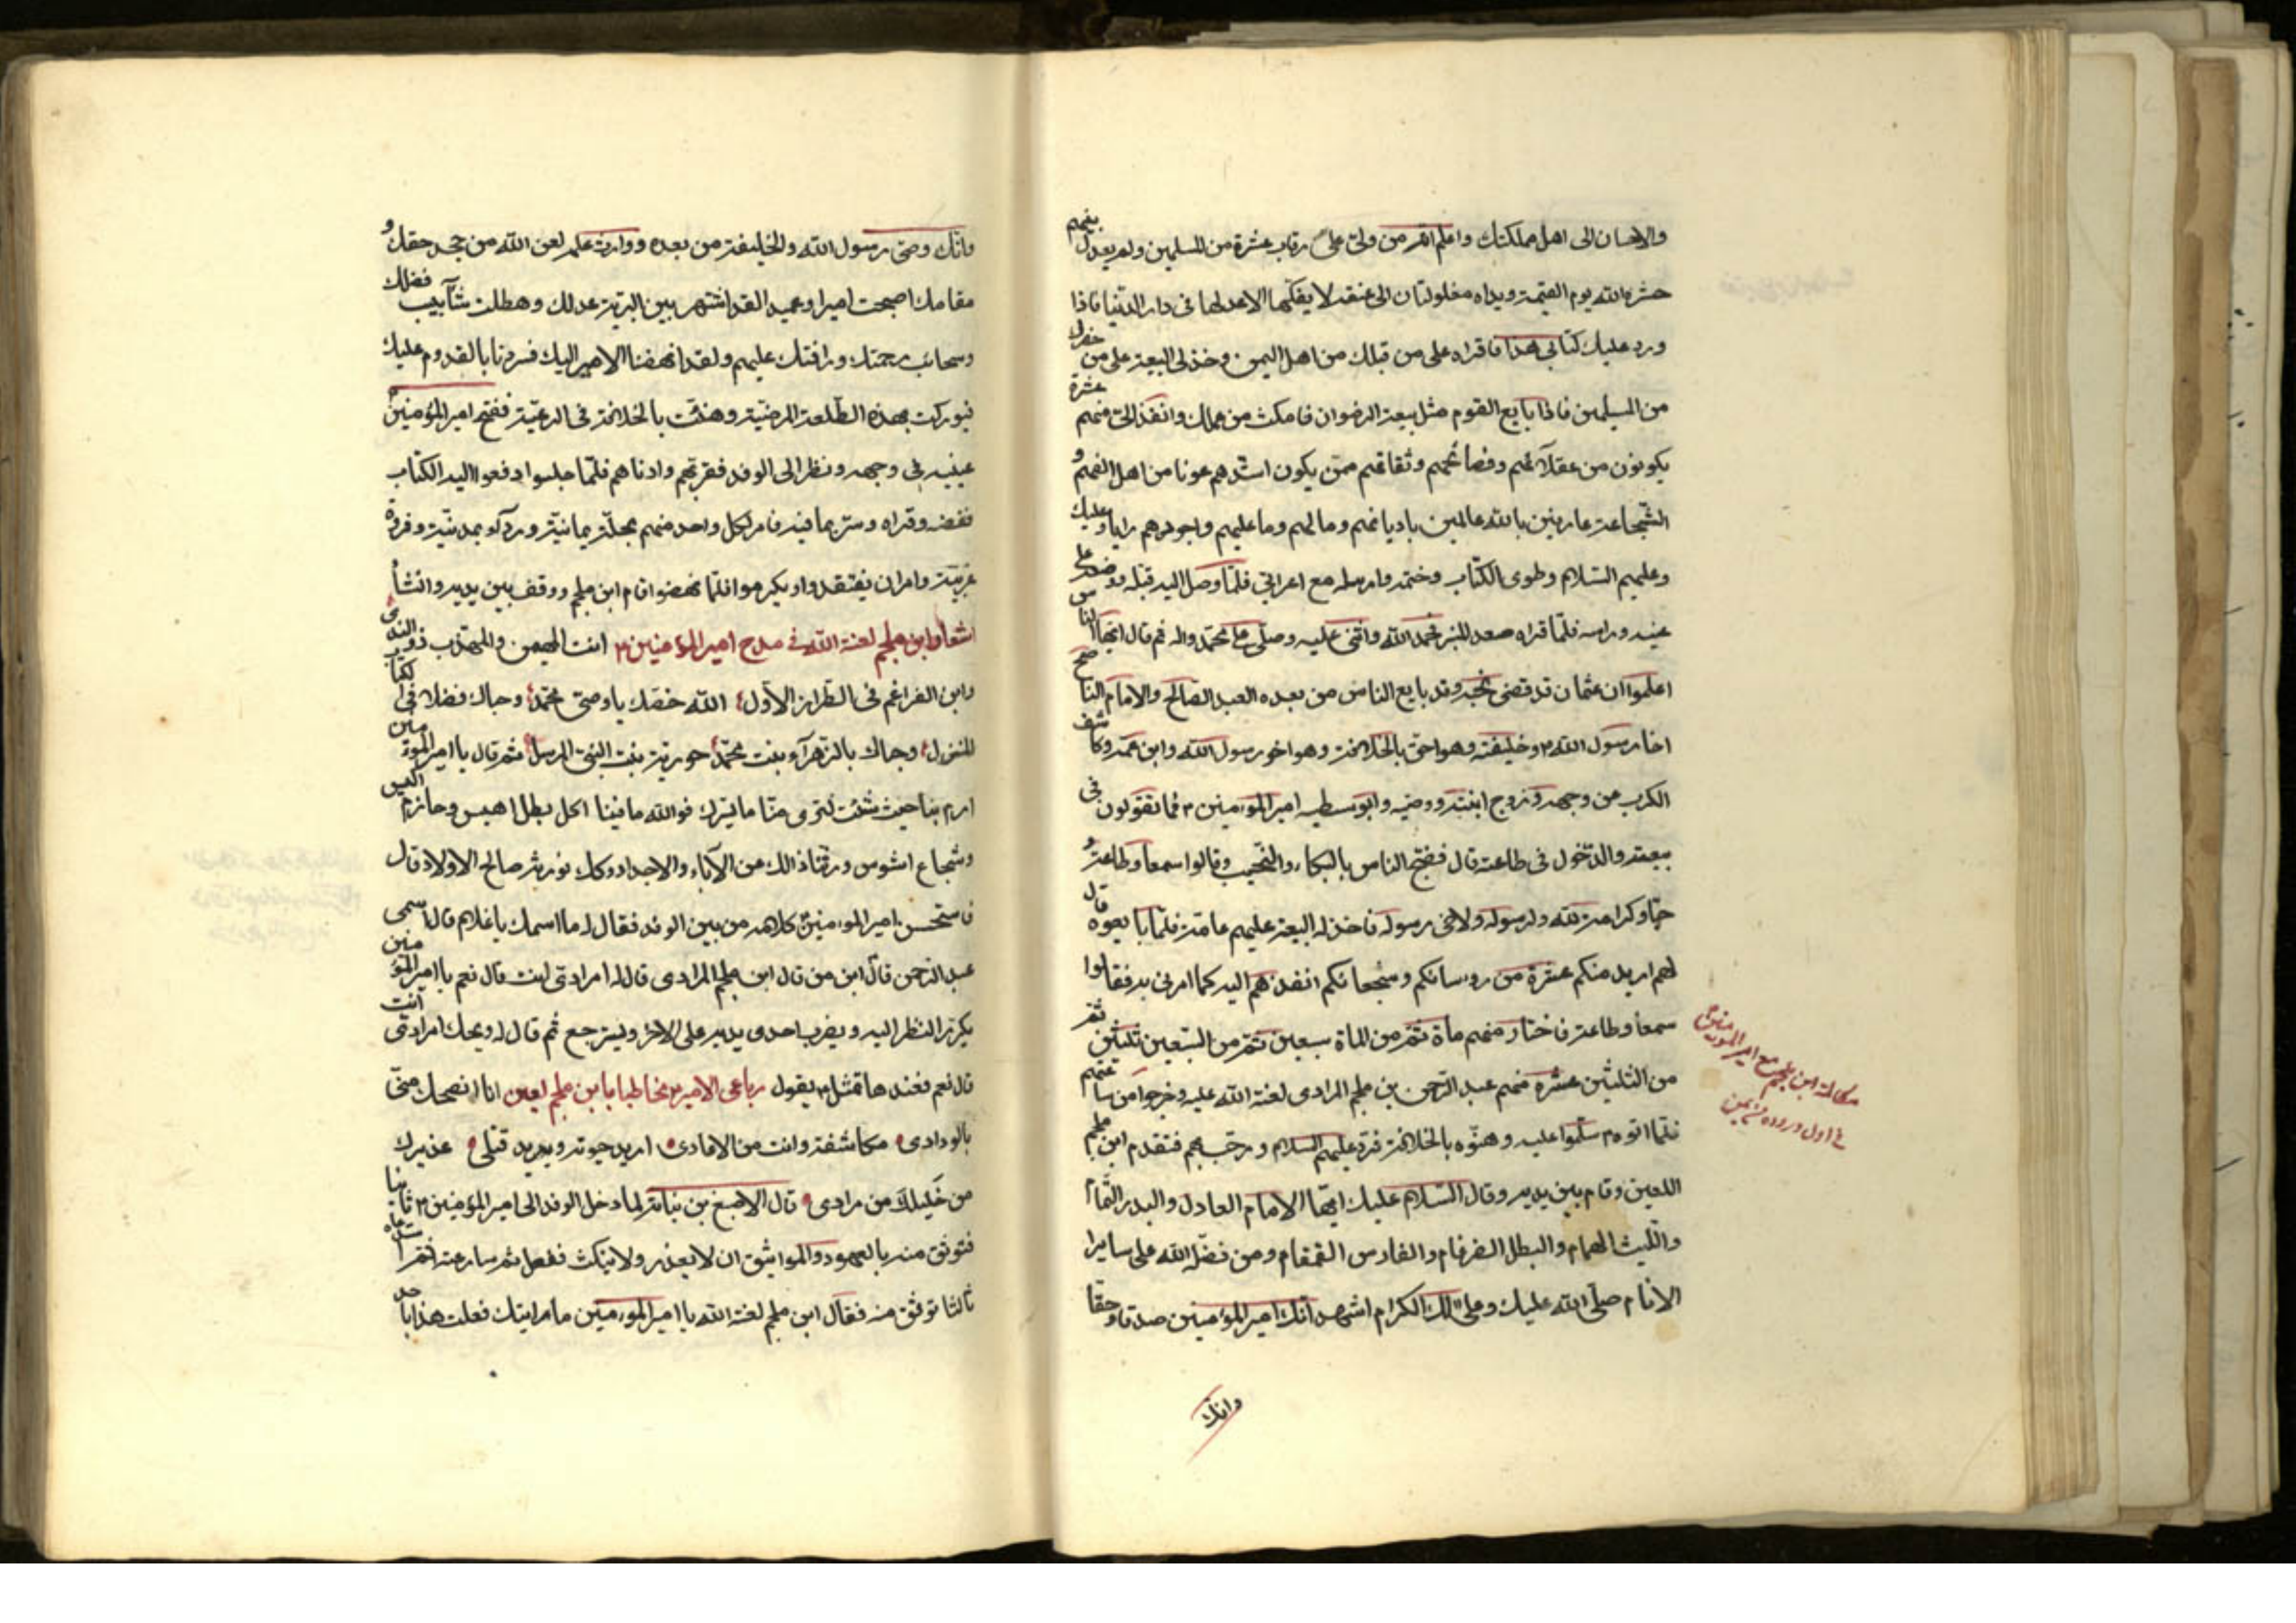 والاحسان الى اهل مملكتك واعلم انه من ولى على رقاب عشرة من المسلمين ولم يعدل بينهم
حشره الله يوم القيمة ويداه مغلولتان الى عنقه لا يفكهما الا عدلها فى دار الدنيا فاذا
ورد عليك كتابى هذا فاقراه على من قبلك من اهل اليمن وخذ لى البيعة على من حضرك
من المسلمين فاذا بايع القوم مثل بيعة الرضوان فامكث من عملك وانفذ الى منهم عشرة
يكونون من عقلائهم وفصائحهم وثقاتهم ممن يكون اشدهم عونا من اهل الفهم و
الشجاعة عارفين بالله عالمين باديانهم ومالهم وما عليهم واجودهم رايا وعليك
وعليهم السلام وطوى الكتاب وختمه وارسله مع اعرابى فلما وصل اليه قبله ووضعه على
عينه وراسه فلما قراه صعد المنبر فحمد الله واثنى عليه وصلى على محمد واله ثم قال ايها الناس
اعلموا ان عثمان قد قضى نحبه وقد بايع الناس من بعده العبد الصالح والامام الناصح
اخا رسول الله م وخليفته وهو احق بالخلافة وهو اخو رسول الله وابن عمه وكاشف
الكرب عن وجهه وزوج ابنته ووصيه وابو سبطيه امير المؤمنين م فما تقولون فى
بيعته والدخول فى طاعته قال فضج الناس بالبكاء والنحيب وقالوا سمعا وطاعة و
حبا وكرامة لله ولرسوله ولاخى رسوله فاخذ له البيعة عليهم عامة فلما بايعوه قال
لهم اريد منكم عشرة من روسائكم وشجعانكم انفذهم اليه كما امرنى به فقالوا
سمعا وطاعة فاختار منهم ماة ثم من الماة سبعين ثم من السبعين ثلثين ثم
من الثلثين عشرة منهم عبد الرحمن بن ملجم المرادى لعنة الله عليه وخرجوا من ساعتهم
فلما اتوه م سلموا عليه وهنوه بالخلافة فرد عليهم السلام ورحب بهم فتقدم ابن ملجم
اللعين وقام بين يديه وقال السلام عليك ايها الامام العادل والبدر التمام
والليث الهمام والبطل الضرغام والفارس القمقام ومن فضله الله على سايرا
الانام صلى الله عليك وعلى الك الكرام اشهد انك امير المؤمنين صدقا وحقا
وانك
مكالمة ابن ملجم مع امير المؤمنين م
فى اول وروده من يمن
وانك وصى رسول الله والخليفة من بعده ووارث علمه لعن الله من جحد حقك و
مقامك اصبحت اميرا وعميدا لقد اشتهر بين البرية عدلك وهطلت شآبيب فضلك
وسحائب رحمتك ورافتك عليهم ولقد انهضنا الامير اليك فسررنا بالقدوم عليك
فبوركت بهذه الطلعة المرضية وهنئت بالخلافة فى الرعية ففتح امير المؤمنين م
عينيه فى وجهه ونظر الى الوفد فقربهم وادناهم فلما جلسوا دفعوا اليه الكتاب
ففضه وقراه وسر بما فيه فامر لكل واحد منهم بحلة يمانية ورداء عدنية وفرس
عربية وامر ان يفتقدوا ويكرموا فلما نهضوا قام ابن ملجم ووقف بين يديه وانشأ
اشعار ابن ملجم لعنة الله فى مدح امير المؤمنين م انت المهيمن والمهذب ذو الندى
وابن الضراغم فى الطراز الاول الله خصك يا وصى محمد وحباك فضلا فى الكتاب
المنزل وحباك بالزهراء بنت محمد حورية بنت النبى المرسل ثم قال يا امير المؤمنين
ارم بنا حيث شئت لترى منا ما يسرك فوالله ما فينا الا كل بطل اهيس وحازم اكيس
وشجاع اشوس ورثنا ذلك من الآباء والاجداد وكك نورثه صالح الاولاد قال
فاستحسن امير المؤمنين كلامه من بين الوفد فقال له ما اسمك يا غلام قال اسمى
عبد الرحمن قال ابن من قال ابن ملجم المرادى قال له امرادى انت قال نعم يا امير المؤمنين
يكرر النظر اليه ويضرب احدى يديه على الاخرى ويسترجع ثم قال له ويحك امرادى انت
قال نعم فعندها تمثل م يقول رباعى الامير م مخاطبا بابن ملجم لعين انا انصحك منى
بالودادى مكاشفة وانت من الاعادى اريد حيوته ويريد قتلى عذيرك
من خليلك من مرادى قال الاصبغ بن نباتة لما دخل الوفد الى امير المؤمنين م ثانيا
فتوثق منه بالعهود والمواثيق ان لا يغدر ولا ينكث ففعل ثم سار عنه فاستدعاه
ثالثا توثق منه فقال ابن ملجم لعنة الله يا امير المؤمنين ما رايتك فعلت هذا باحد